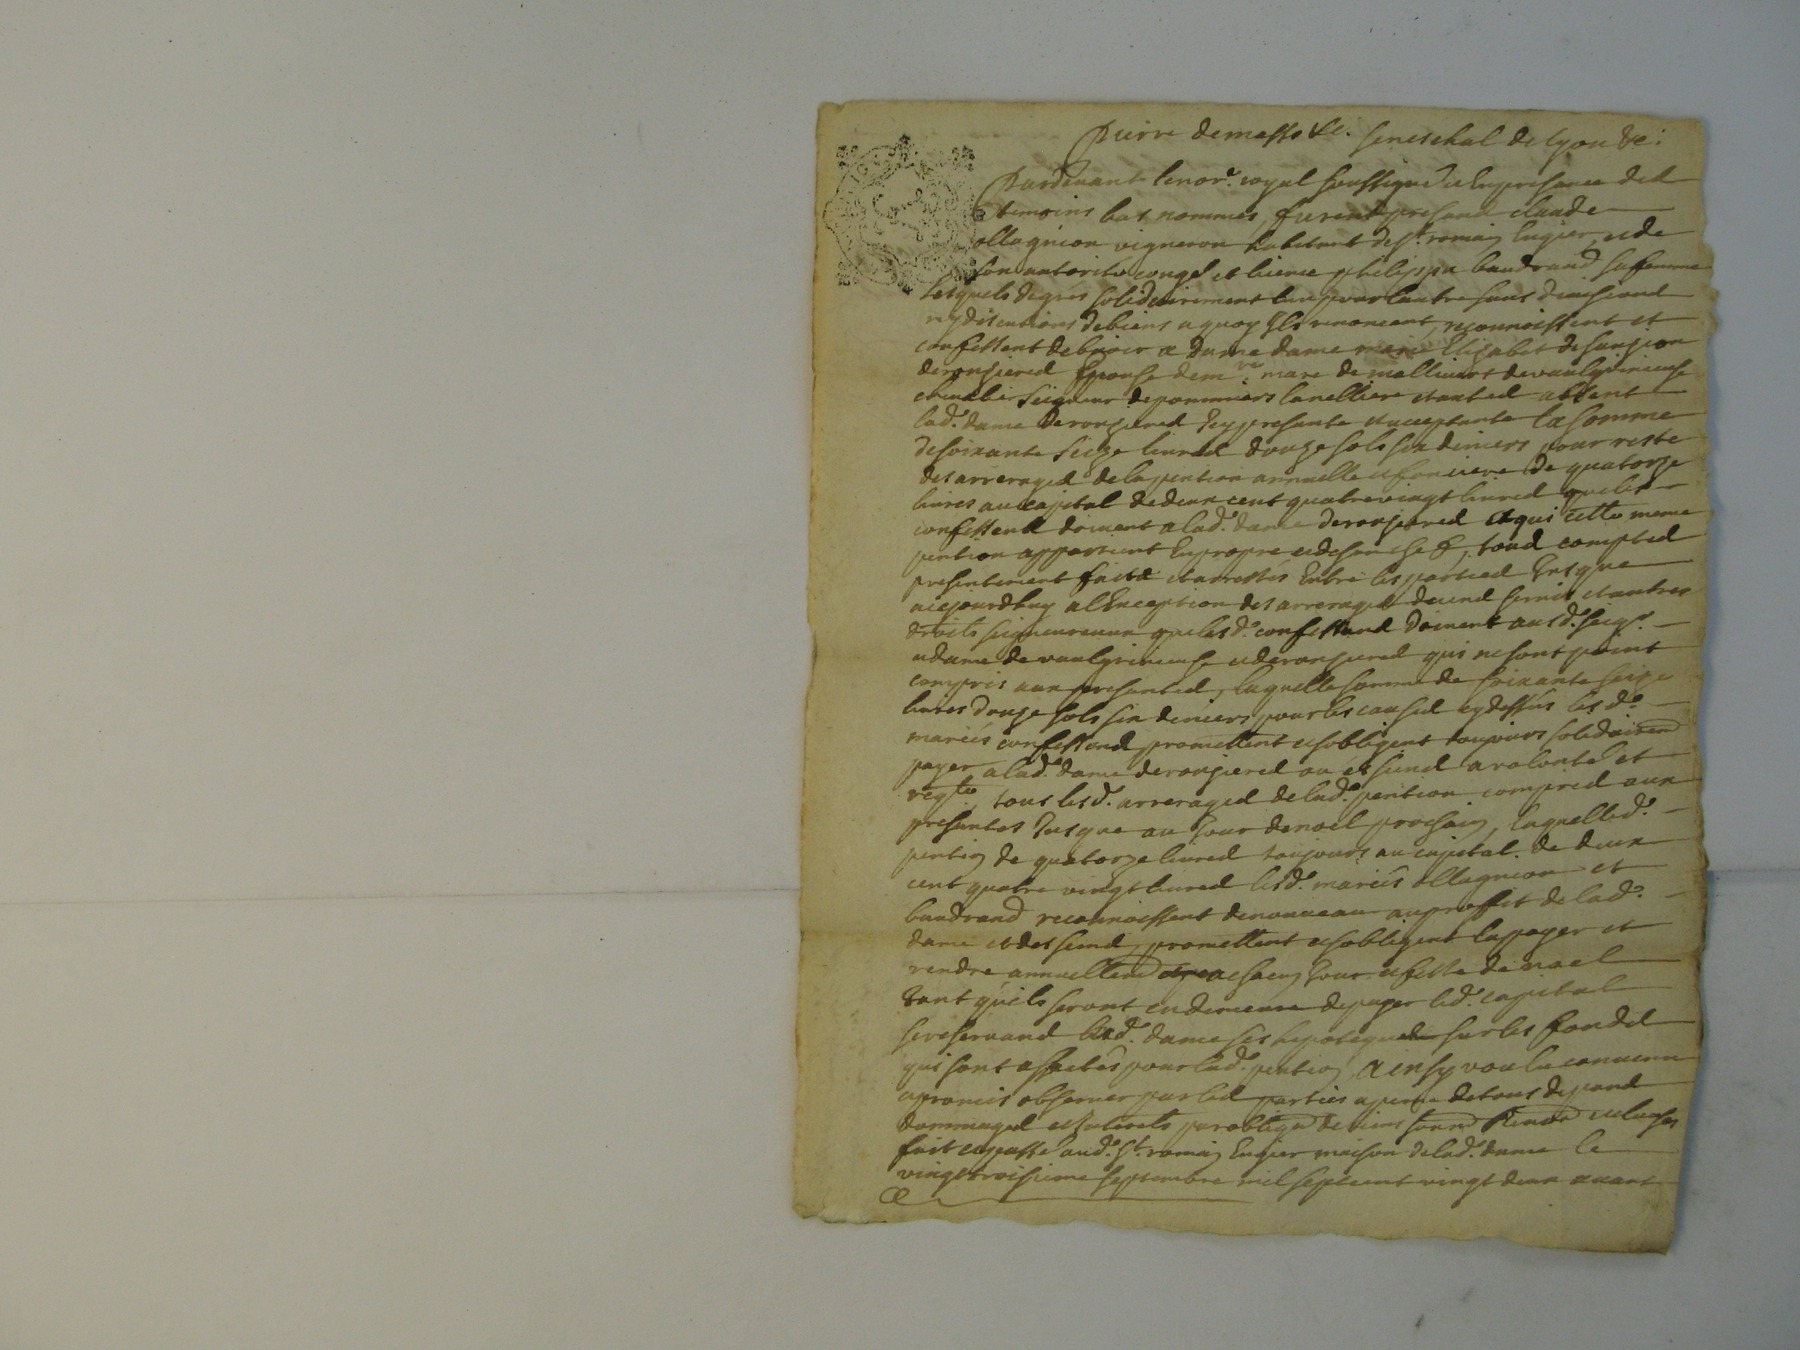 Pierre demasso &c. seneschal de lyon &c:
Pardevant le no.re royal soussigné et En presance des
temoins bas nommes, furent presand claude
ollagnion vigneron habitant de st. romain En gier, et de
son autorité congé et licence philippa baudrand sa femme
Lesquels degrés solidairement lun pour lautre sans division
ny discutions de biens a quoy Ils renoncent, reconnoissent et
confessent debvoir a dame marie Elizabet
derongered Epouse de mre. marc de
chevalier seigneur de pommiers la nelliere et autred absent
lad.e dame derongered Icy presante et acceptante la somme
de soixante seize livred douze sols six deniers pour reste
des arreraged de la pention annuelle et fonciere de quatorze
livres au capital de deux cent quatre vingt livred quels
confessand doivent a lad.e dame derongered et qui cette meme
pention appartient En propre et de son chef, toud compted
presentement faitd et arrestés Entre les partied Jusque
aujourdhuy a lException des arreraged servis et autres
droits seigneureaux que lesd.s confessand doivent ausd.s seigr.
et dame de et derongered qui ne sont point
compris aux presanted, laquelle somme de soixante seize
livres douze sols six deniers pour les caused cy dessus lesd.s
mariés confessand promettent et sobligent toujours solidairem
payer a lad.e dame derongered ou es siend a volonté et
reqte, tous lesd.s arreraged de lad.e pention compred aux
presantes Jusque au Jour de noel prochain, laquelle d.e
pention de quatorze livred toujours au capital de deux
cent quatre vingt livred lesd.s mariés ollagnion et
baudrand reconnoissent de nouveau au proffit de lad.e
dame et des siend, promettent et sobligent la payer et
rendre annuellemd chacun Jour et feste de noel
tant quils seront en demeure de payer led.t capital
se reservand lad.e dame ses hypoteques sur les fondd
qui sont affectés pour lad.e pention, Ainsy voulu convenu
et promis observer par led parties a peine de tous depand
dommaged et Interets par obligaon de biens soumon Renoon et clauses
fait et passé aud.t st. romain En gier maison de lad.e dame le
vingt troisieme septembre mil sept cent vingt deux avant